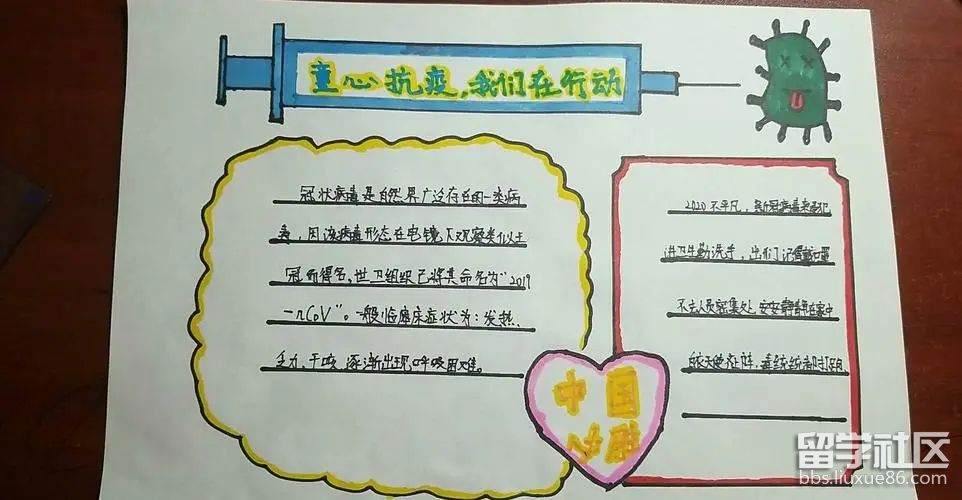 童心抗疫，我们在行动
冠状病毒是自然界广泛存在的一类病
毒，因该病毒形态在电镜下观察类似王
冠而得名，世卫组织已将其命名为“2019
-nCoV”。一般临床症状为：发热、
乏力、干咳、逐渐出现呼吸困难。
2020不平凡，新冠病毒来
讲卫生勤洗手，出门记得戴口罩
不去人员密集处，安安静静在家中
天使 阵，毒统统都
中国
加油
留学社区
bbs.liuxue86.com